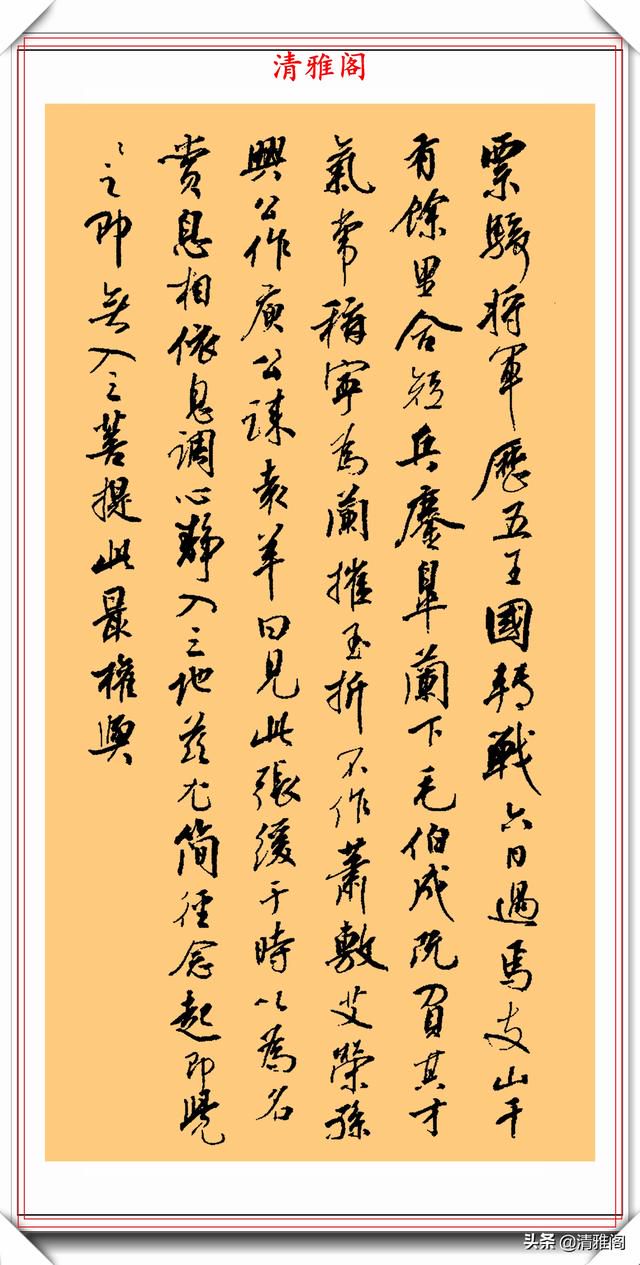 清雅阁
票騎将軍歷五王國轉戰六日過焉支山千
有餘里合短兵鏖皋蘭下毛伯成既負其才
氣常稱寧為蘭摧玉折不作蕭敷艾榮孫
興公作庾公誄袁羊曰見此張緩于時以為名
賞息相依息調心靜入三地茲尤简徑念起即覺
覺之即無入三菩提此最權輿
头条 @清雅阁